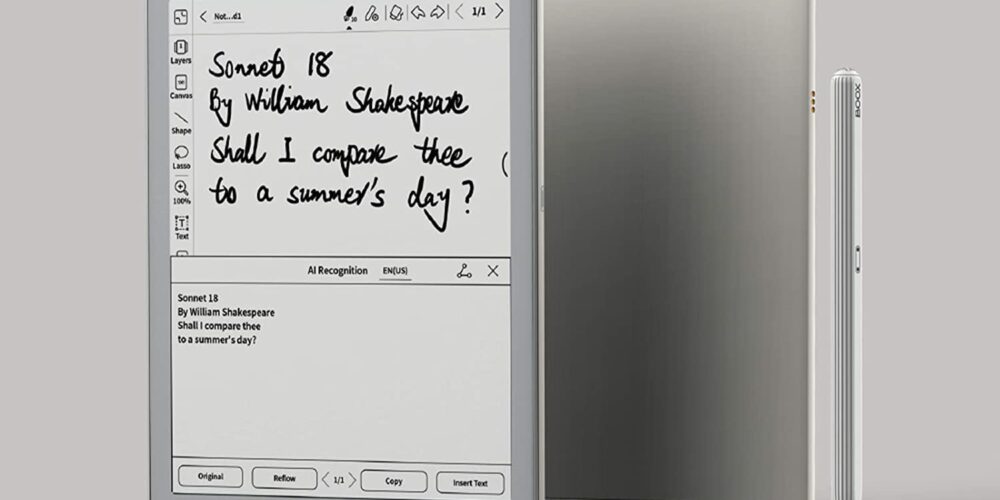 Not...d1
1/1
Layers
Canvas
Shape
Lasso
100%
Text
Sonnet 18
By William Shakespeare
Shall I compare thee
to a summer's day?
AI Recognition EN(US)
Sonnet 18
By William Shakespeare
Shall I compare thee
to a summer's day?
Original
Reflow
1/1
Copy
Insert Text
BOOX